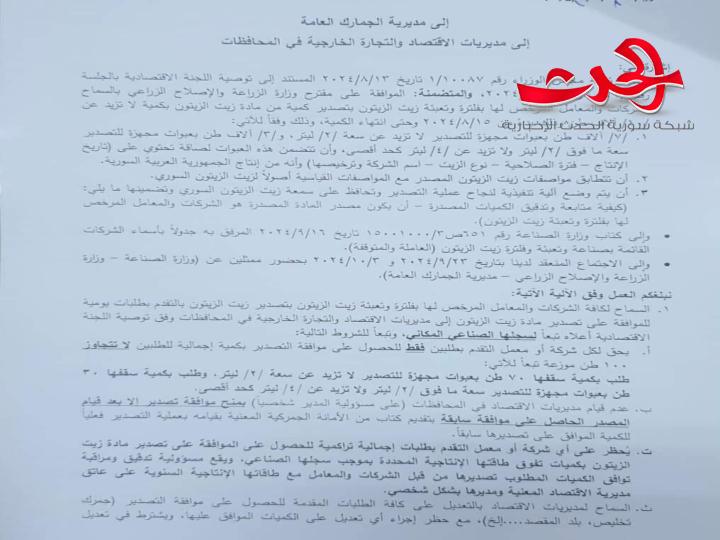 إلى مديرية الجمارك العامة
إلى مديريات الاقتصاد والتجارة الخارجية في المحافظات
الحدث
شبكة سورية الحدث الإخبارية
الوزراء رقم ١/١٠٠٨٧ تاريخ ٢٠٢٤/٨/١٣ المستند إلى توصية اللجنة الاقتصادية بالجلسة
٢٠٢٤، والمتضمنة: الموافقة على مقترح وزارة الزراعة والإصلاح الزراعي بالسماح
والمعامل المرخص لها بفلترة وتعبئة زيت الزيتون بتصدير كمية من مادة زيت الزيتون بكمية لا تزيد عن
طن ٢٠٢٤/٨/١٥ وحتى انتهاء الكمية، وذلك وفقاً للآتي:
١. /٧/ آلاف طن بعبوات مجهزة للتصدير لا تزيد عن سعة /٢/ ليتر، و/٣/ آلاف طن بعبوات مجهزة للتصدير
سعة ما فوق /٢/ ليتر ولا تزيد عن /٤/ ليتر كحد أقصى، وأن تتضمن هذه العبوات لصاقة تحتوي على (تاريخ
الإنتاج – فترة الصلاحية – نوع الزيت – اسم الشركة وترخيصها) وأنه من إنتاج الجمهورية العربية السورية.
٢. أن تتطابق مواصفات زيت الزيتون المصدر مع المواصفات القياسية أصولاً لزيت الزيتون السوري.
٣. أن يتم وضع آلية تنفيذية لنجاح عملية التصدير وتحافظ على سمعة زيت الزيتون السوري وتضمينها ما يلي:
(كيفية متابعة وتدقيق الكميات المصدرة – أن يكون مصدر المادة المصدرة هو الشركات والمعامل المرخص
لها بفلترة وتعبئة زيت الزيتون).
• وإلى كتاب وزارة الصناعة رقم ٦٥١ص/١٥٠٠١٠٠٠/٣ تاريخ ٢٠٢٤/٩/١٦ المرفق به جدولاً بأسماء الشركات
القائمة بصناعة وتعبئة وفلترة زيت الزيتون (العاملة والمتوقفة).
• وإلى الاجتماع المنعقد لدينا بتاريخ ٢٠٢٤/٩/٢٣ و ٢٠٢٤/١٠/٣ بحضور ممثلين عن (وزارة الصناعة – وزارة
الزراعة والإصلاح الزراعي – مديرية الجمارك العامة).
نبلغكم العمل وفق الآلية الآتية:
١. السماح لكافة الشركات والمعامل المرخص لها بفلترة وتعبئة زيت الزيتون بتصدير زيت الزيتون بالتقدم بطلبات يومية
للموافقة على تصدير مادة زيت الزيتون إلى مديريات الاقتصاد والتجارة الخارجية في المحافظات وفق توصية اللجنة
الاقتصادية أعلاه تبعاً لسجلها الصناعي المكاني، وتبعاً للشروط التالية:
أ. يحق لكل شركة أو معمل التقدم بطلبين فقط للحصول على موافقة التصدير بكمية إجمالية للطلبين لا تتجاوز
١٠٠ طن موزعة تبعاً للآتي:
طلب بكمية سقفها ٧٠ طن بعبوات مجهزة للتصدير لا تزيد عن سعة /٢/ ليتر، وطلب بكمية سقفها ٣٠
طن بعبوات مجهزة للتصدير سعة ما فوق /٢/ ليتر ولا تزيد عن /٤/ ليتر كحد أقصى.
ب. عدم قيام مديريات الاقتصاد في المحافظات (على مسؤولية المدير شخصياً) بمنح موافقة تصدير إلا بعد قيام
المصدر الحاصل على موافقة سابقة بتقديم كتاب من الأمانة الجمركية المعنية بقيامه بعملية التصدير فعلياً
للكمية الموافق على تصديرها سابقاً.
ت. يُحظر على أي شركة أو معمل التقدم بطلبات إجمالية تراكمية للحصول على الموافقة على تصدير مادة زيت
الزيتون بكميات تفوق طاقتها الإنتاجية المحددة بموجب سجلها الصناعي، ويقع مسؤولية تدقيق ومراقبة
توافق الكميات المطلوب تصديرها من قبل الشركات والمعامل مع طاقاتها الإنتاجية السنوية على عاتق
مديرية الاقتصاد المعنية ومديرها بشكل شخصي.
ث. السماح لمديريات الاقتصاد بالتعديل على كافة الطلبات المقدمة للحصول على موافقة التصدير (جمرك
تخليص، بلد المقصد....إلخ)، مع حظر إجراء أي تعديل على الكميات الموافق عليها، ويشترط في تعديل